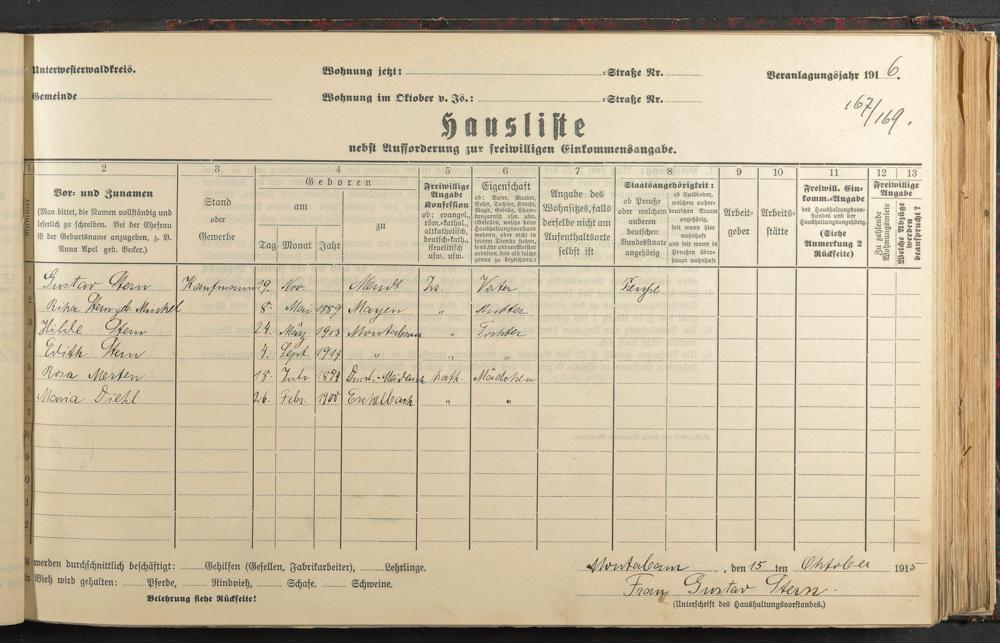 Unterwesterwaldkreis.
Wohnung jetzt: =Straße Nr.
Veranlagungsjahr 1916.
Gemeinde
Wohnung im Oktober v. Js.: =Straße Nr.
167/169.
Hausliste
nebst Aufforderung zur freiwilligen Einkommensangabe.
2 3 4 5 6 7 8 9 10 11 12 13
Vor- und Zunamen
(Man bittet, die Namen vollständig und
leserlich zu schreiben. Bei der Ehefrau
ist der Geburtsname anzugeben, z. B.
Anna Apel geb. Becker.)
Stand
oder
Gewerbe
Geboren
am
zu
Tag Monat Jahr
Freiwillige
Angabe
Konfession
ob: evangel.,
röm.-kathol.,
altkatholisch,
deutsch-kath.,
israelitisch
usw. usw.
Eigenschaft
Angabe des
Wohnsitzes, falls
derselbe nicht am
Aufenthaltsorte
selbst ist
Staatsangehörigkeit:
ob Preuße
oder welchem
anderen
deutschen
Bundesstaate
angehörig
Arbeit-
geber
Arbeits-
stätte
Freiwill. Ein-
komm.-Angabe
des Haushaltungsvor-
standes und der
Haushaltungsangehörig.
(Siehe
Anmerkung 2
Rückseite)
Freiwillige
Angabe
Zu zahlende
Wohnungsmiete
Welche Abzüge
werden
beansprucht?
1 Gustav Stern Kaufmann 19. Nov. Isr. Vater
2 Rika Stern 8. Mai 1889 Mayen " Mutter
3 Hilde Stern 24. März 1913 Montabaur " Tochter
Edith Stern 4. Sept. 1914 " " "
5 Rosa Merten 18. Juli kath. Mädchen
Maria Diehl 26. Febr. 1900 Eschelbach " "
7
werden durchschnittlich beschäftigt: Gehilfen (Gesellen, Fabrikarbeiter), Lehrlinge.
Vieh wird gehalten: Pferde, Rindvieh, Schafe. Schweine.
Belehrung siehe Rückseite!
Montabaur, den 15 ten Oktober 1915
Frau Gustav Stern.
(Unterschrift des Haushaltungsvorstandes.)